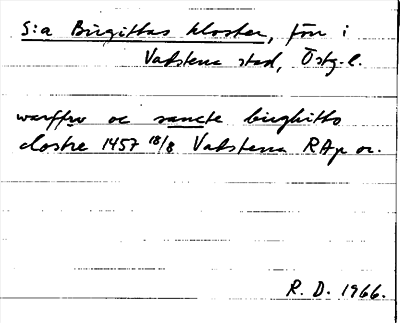 S:a Birgittas kloster, förr i
Vadstena stad, Östg. l.
warffrv oc sancte birghitto
clostre 1457 18/8 Vadstena RAp or.
R. D. 1966.